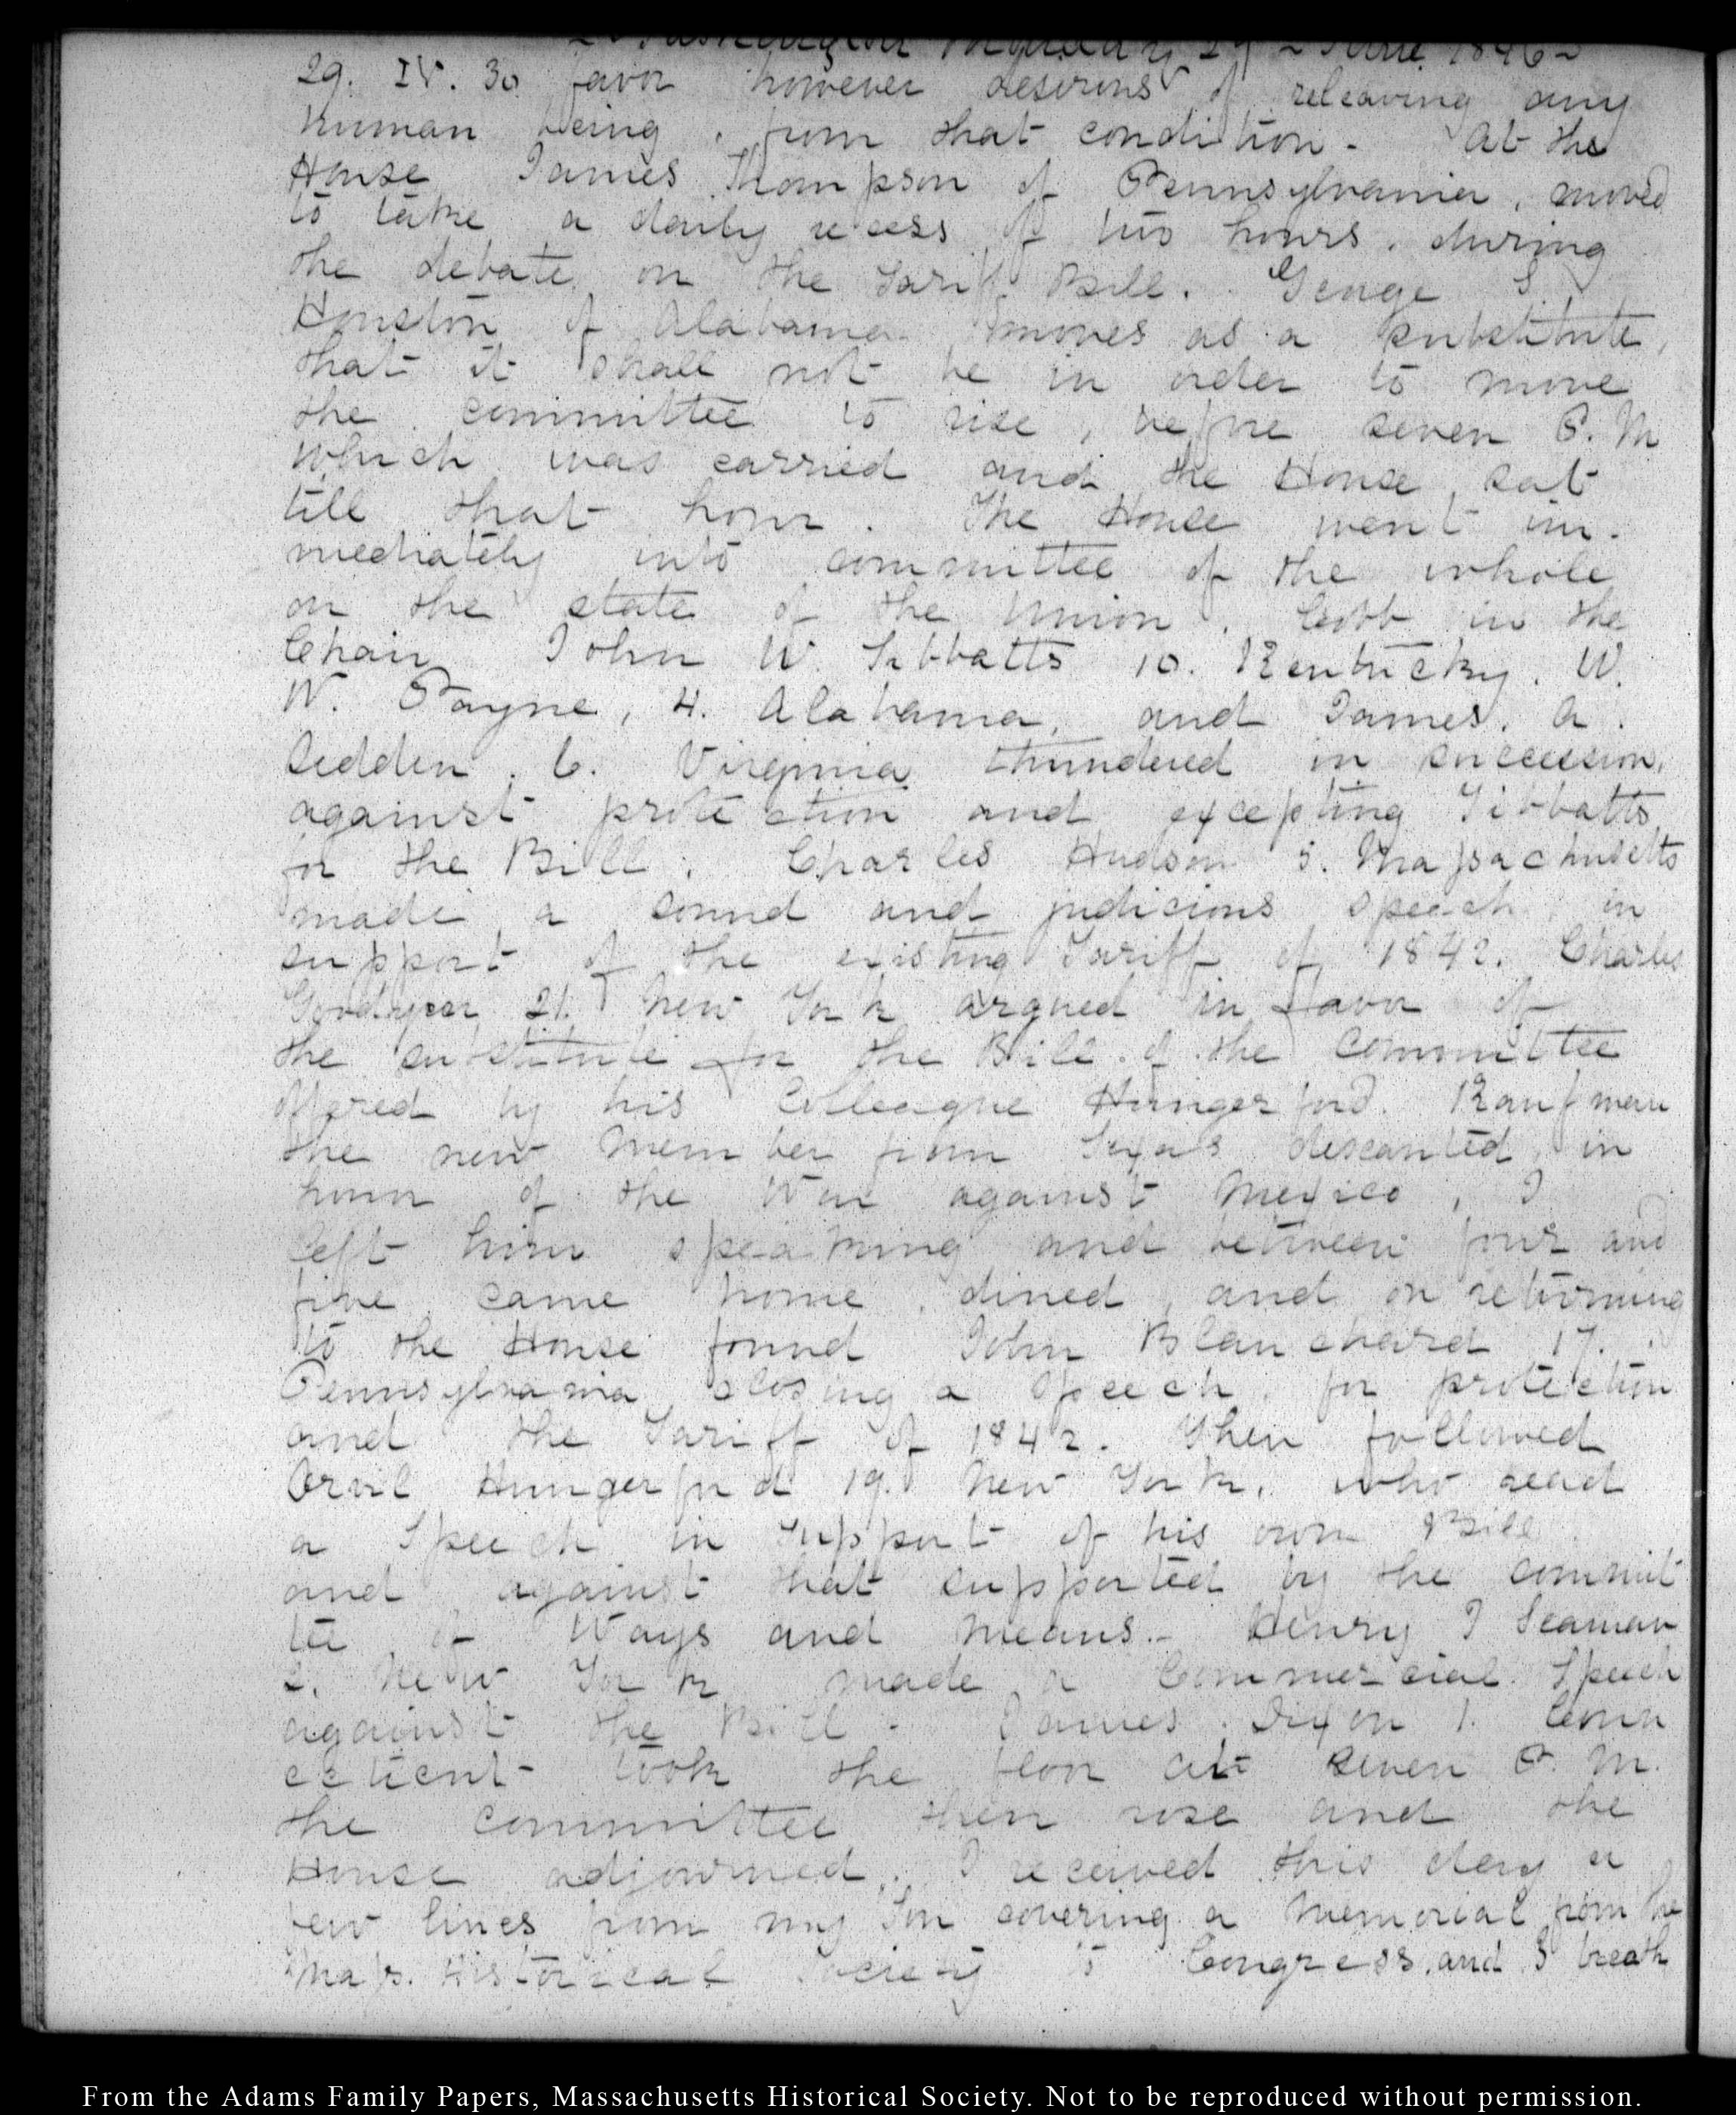 Washington Monday 29 June 1846
29. IV. 30 favor however desirous of releaving any
human being, from that condition - At the
House James Thompson of Pennsylvania, moved
to take a daily recess of two hours, during
the debate on the Tariff Bill. George S
Houston of Alabama moves as a substitute,
that it shall not be in order to move
the committee to rise, before seven P.M
which was carried and the House, sat
till that hour. The House went im-
mediately into committee of the whole
on the state of the Union. Cobb in the
Chair John W. Tibbatts 10. Kentucky. W.
W. Payne, 4. Alabama, and James. A.
Sedden. 6. Virginia thundered in succession,
against protection and excepting Tibbatts
for the Bill. Charles Hudson 5. Massachusetts
made a sound and judicious speech in
support of the existing Tariff of 1842. Charles
Goodyear 21. New York argued in favor of
the substitute for the Bill of the Committee
offered by his Colleague Hungerford. Kaufman
the new Member from Texas descanted, in
honor of the War against Mexico, I
left him speaking and between four and
five came home, dined, and on returning
to the House found John Blanchard 17.
Pennsylvania closing a Speech, for protection
and the Tariff of 1842. Then followed
Orvil Hungerford 19. New York, who read
a Speech in support of his own Bill
and against that supported by the commit
tee of Ways and Means. - Henry I Seaman
2. New York made a Commercial Speech
against the Bill - James Dixon 1. Conn
ecticut - took the floor at seven P.M.
the committee then rose and the
House adjourned. I received this day a
few lines from my Son covering a Memorial from the
Mass. Historical Society to Congress, and I breath
From the Adams Family Papers, Massachusetts Historical Society. Not to be reproduced without permission.